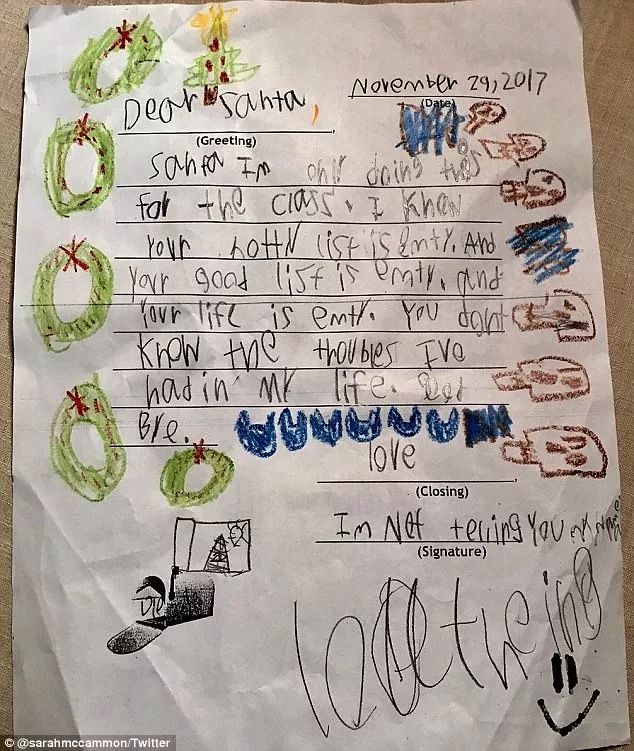 November 29, 2017
(Date)
Dear Santa,
(Greeting)
Santa Im only doing this
for the class. I know
Your notty list is emty. And
Your good list is emty. And
Your life is emty. You dont
know the troubles I've
had in my life. Good
Bye.
love
(Closing)
Im Not telling You my name
(Signature)
© @sarahmccammon/Twitter